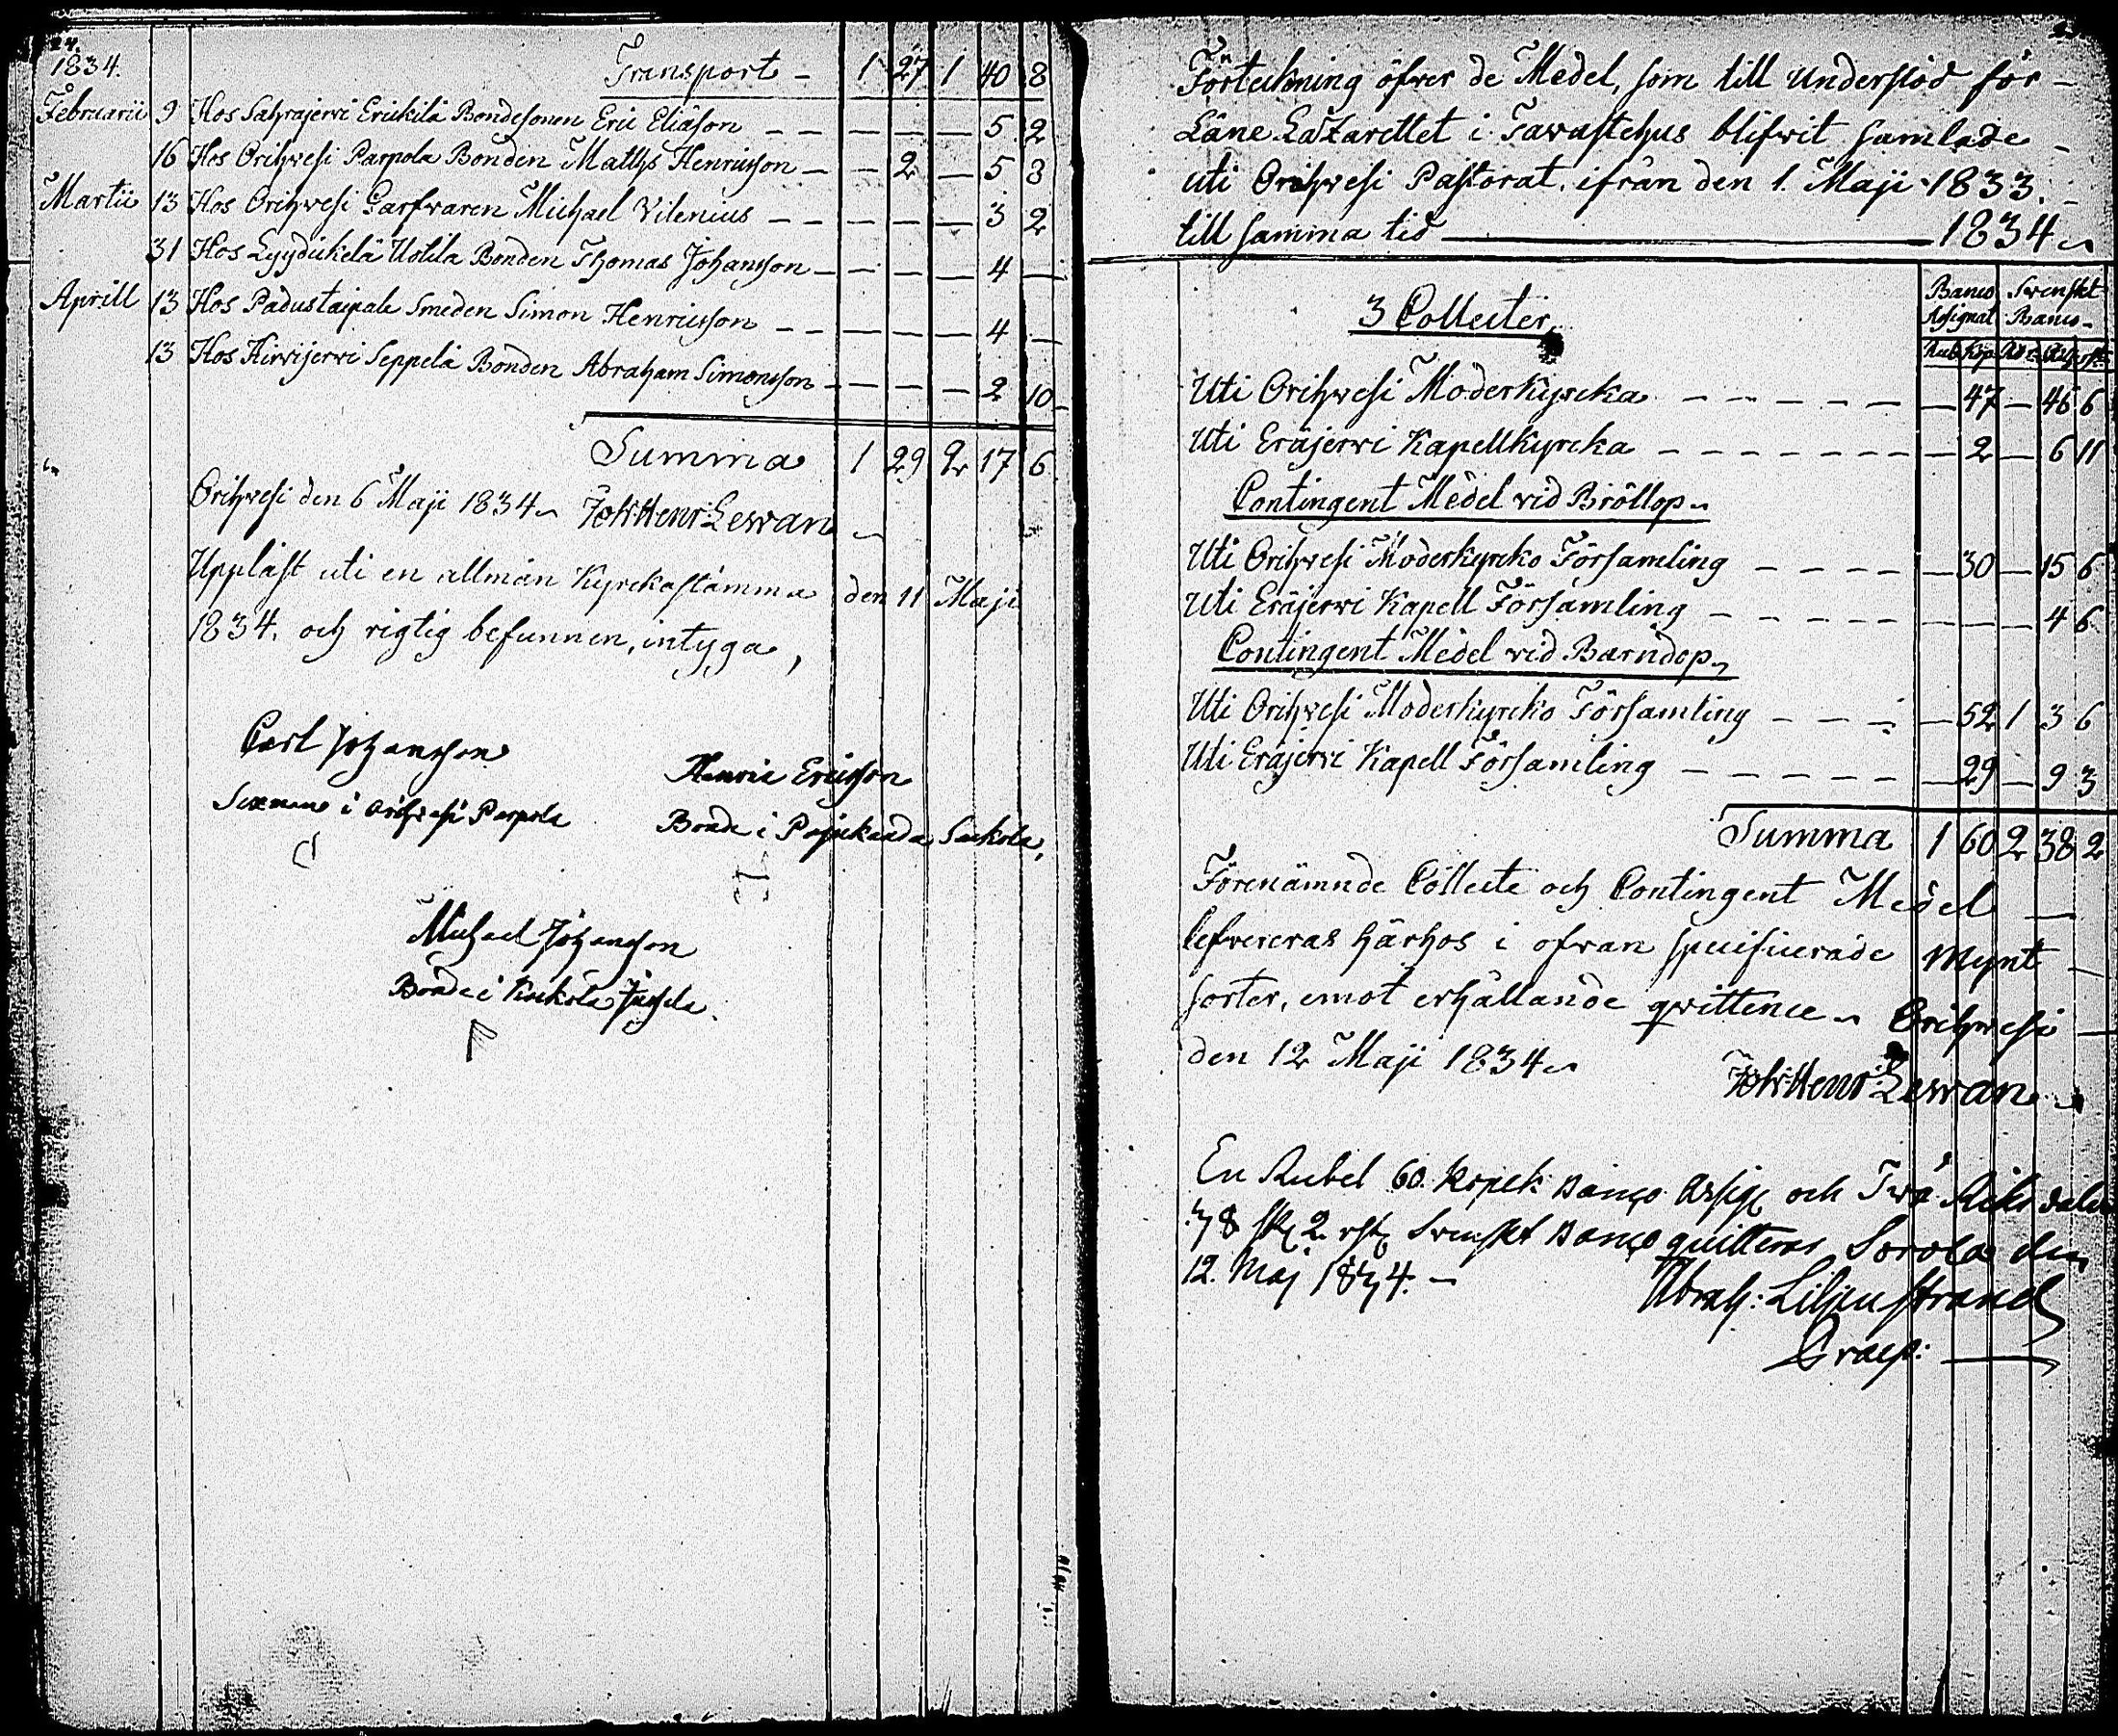 24.
1834. Transport - 1 27 1 40 8
Februarii 9 Hos Sahrajerwi Erickilä Bondesonen Eric Eliäson - - - - - 5 2
16 Hos Orihwesi Parpola Bonden Matths Henricsson - - 2 - 5 3
Martii 13 Hos Orihwesi Garfwaren Michael Vilenius - - - - - 3 2
31 Hos Lyydickelä Uotila Bonden Thomas Johansson - - - - 4 -
Aprill 13 Hos Padustaipale Smeden Simon Henricsson - - - - - 4 -
13 Hos Hirwijerwi Seppelä Bonden Abraham Simonsson - - - - 2 10
Summa 1 29 2 17 6
Orihwesi den 6 Maji 1834 Joh: Henr: Lewan
Uppläst uti en allmän Kyrckostämma den 11 Maji
1834. och rigtig befunnen, intyga,
Carl Johansson
i Orihwesi Parpola
Henric Ericsson
Bonde i Pajukanda
Michael Johansson
Bonde i
Förteckning öfver de Medel, som till understöd för
Läne Lazarettet i Tawastehus blifwit samlade
uti Orihwesi Pastorat. ifrån den 1. Maji 1833.
till samma tid 1834
Banco Swenskt
Assignat Banco
Rub Kop Rdr
3 Collecter
Uti Orihwesi Moderkyrcka - - - - - - 47 - 46 6
Uti Eräjerwi Kapellkyrcka - - - - - - - 2 - 6 11
Contingent Medel vid Bröllop
Uti Orihwesi Moderkyrcko Församling - - - - - 30 - 15 6
Uti Eräjerwi Kapell Församling - - - - - - - - 4 6
Contingent Medel vid Barndop
Uti Orihwesi Moderkyrcko Församling - - - - 52 1 3 6
Uti Eräjerwi Kapell Församling - - - - - - 29 - 9 3
Summa 1 60 2 38 2
Förenämnde Collecte och Contingent Medel
lefwereras härhos i ofwan specificerade Mynt
sorter, emot erhållande qwittence Orihwesi
den 12 Maji 1834
Joh: Henr: Lewan
En Rubel 60 Kopek Banco Assig och Två Riksdaler
38 sk 2 rst Swenskt Banco quitteras Sorola den
12. Maj 1834. -
Abrah: Liljenstrand